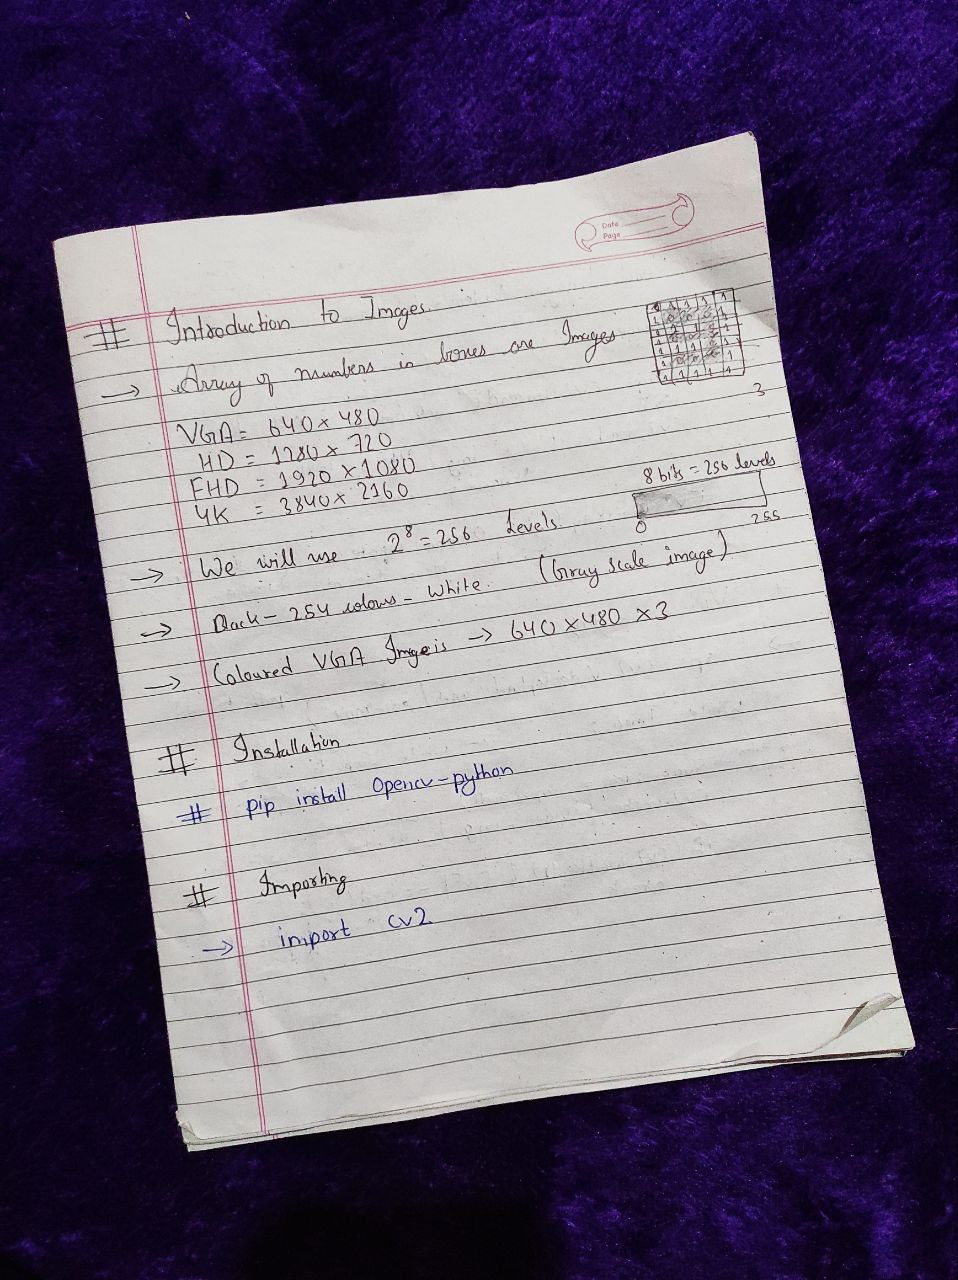 Date
Page
# Introduction to Images.
→ Array of numbers in boxes are Images
3
VGA = 640 × 480
HD = 1280 × 720
FHD = 1920 × 1080
4K = 3840 × 2160
8 bits = 256 levels
0 255
→ We will use 2⁸ = 256 Levels.
→ Dark - 254 colours - White. (Gray scale image)
→ Coloured VGA Image is → 640 × 480 × 3
# Installation
# pip install Opencv-python
# Importing
→ import cv2